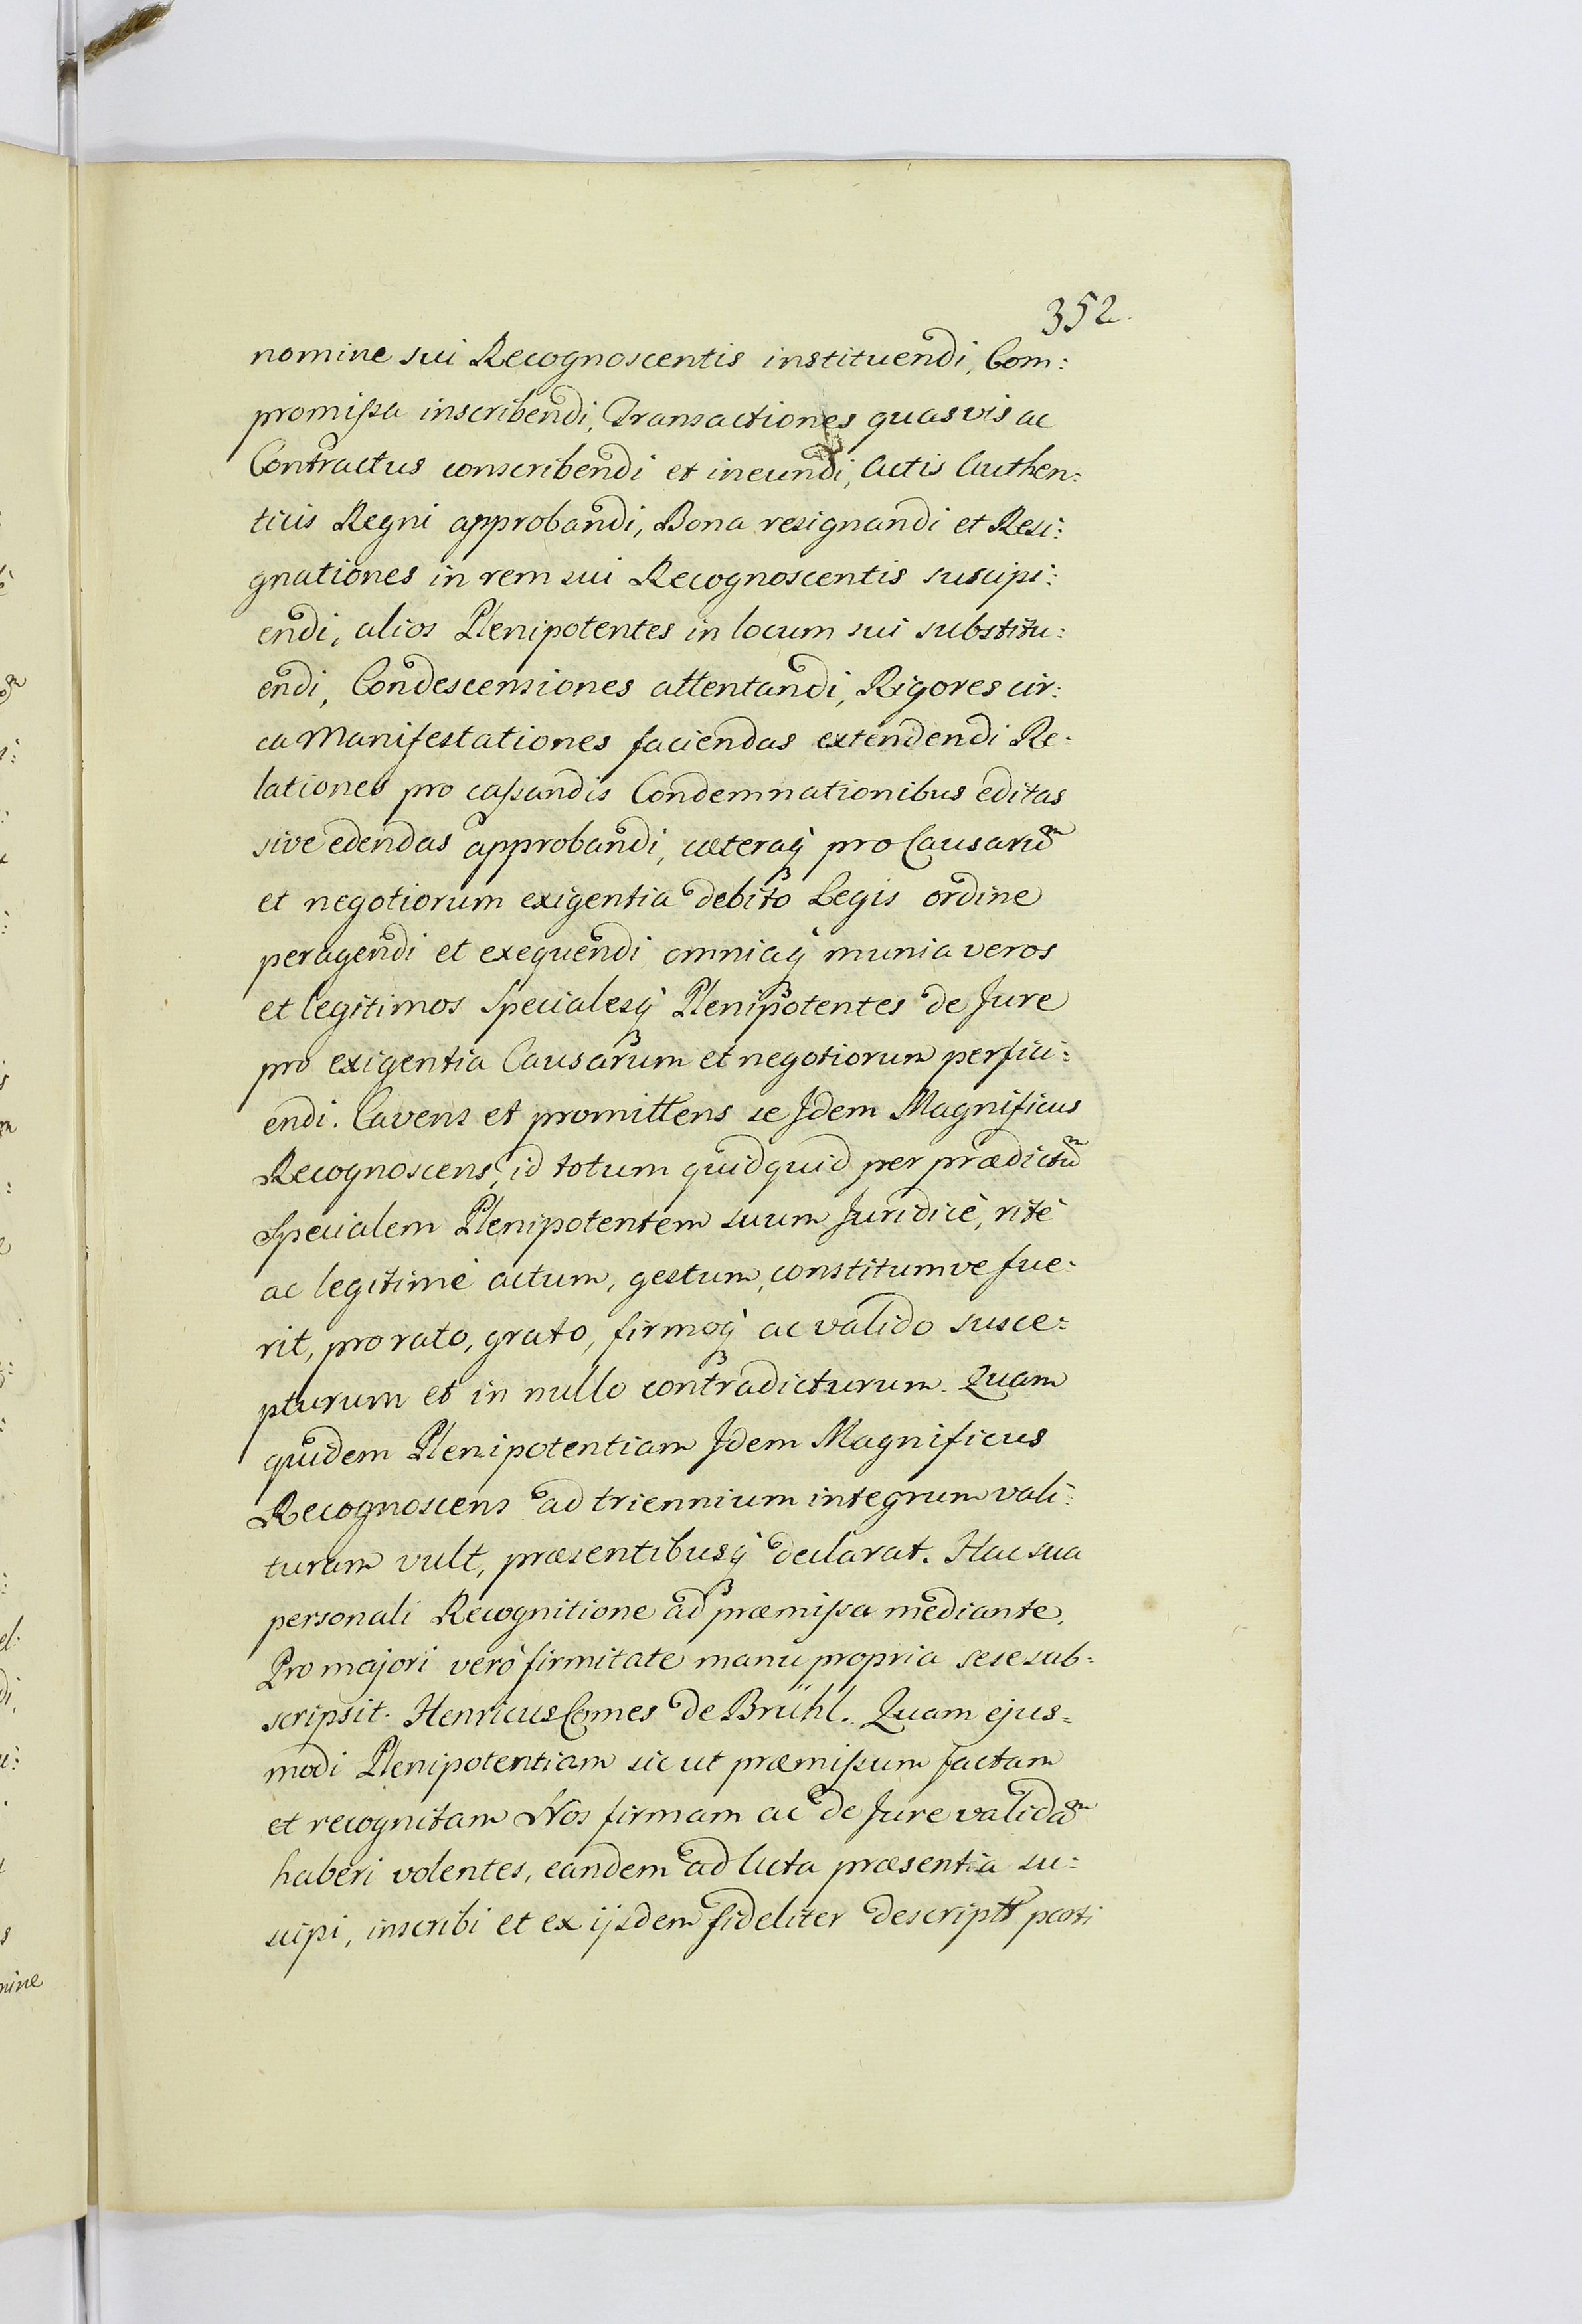 352.
nomine sui Recognoscentis instituendi, Com:
promissa inscribendi, Transactiones quasvis ac
Contractus conscribendi et ineundi, Actis Authen:
ticis Regni approbandi, Bona resignandi et Resi:
gnationes in rem sui Recognoscentis suscipi:
endi, alios Plenipotentes in locum sui substitu:
endi, Condescensiones attentandi, Rigores cir:
ca Manifestationes faciendas extendendi Re:
lationes pro cassandis Condemnationibus editas
sive edendas approbandi, cæteraqȝ pro Causarũ
et negotiorum exigentia debito Legis ordine
peragendi et exequendi omniaqȝ munia veros
et legitimos Specialesqȝ Plenipotentes de Jure
pro exigentia Causarum et negotiorum perfici:
endi. Cavens et promittens se Idem Magnificus
Recognoscens, id totum quidquid per prædictũ
Specialem Plenipotentem suum Juridicè, ritè
ac legitimè actum, gestum, constitumve fue:
rit, pro rato, grato, firmoqȝ ac valido susce:
pturum et in nullo contradicturum. Quam
quidem Plenipotentiam Idem Magnificus
Recognoscens ad triennium integrum vali:
turam vult, præsentibusqȝ declarat. Hac sua
personali Recognitione ad præmissa mediante.
Pro majori verò firmitate manu propria sese sub:
scripsit. Henricus Comes de Brühl. Quam ejus=
modi Plenipotentiam sic ut præmissum factam
et recognitam Nos firmam ac de Jure validã
haberi volentes, eandem ad Acta præsentia su:
scipi, inscribi et ex ijsdem fideliter descriptã parti
mine